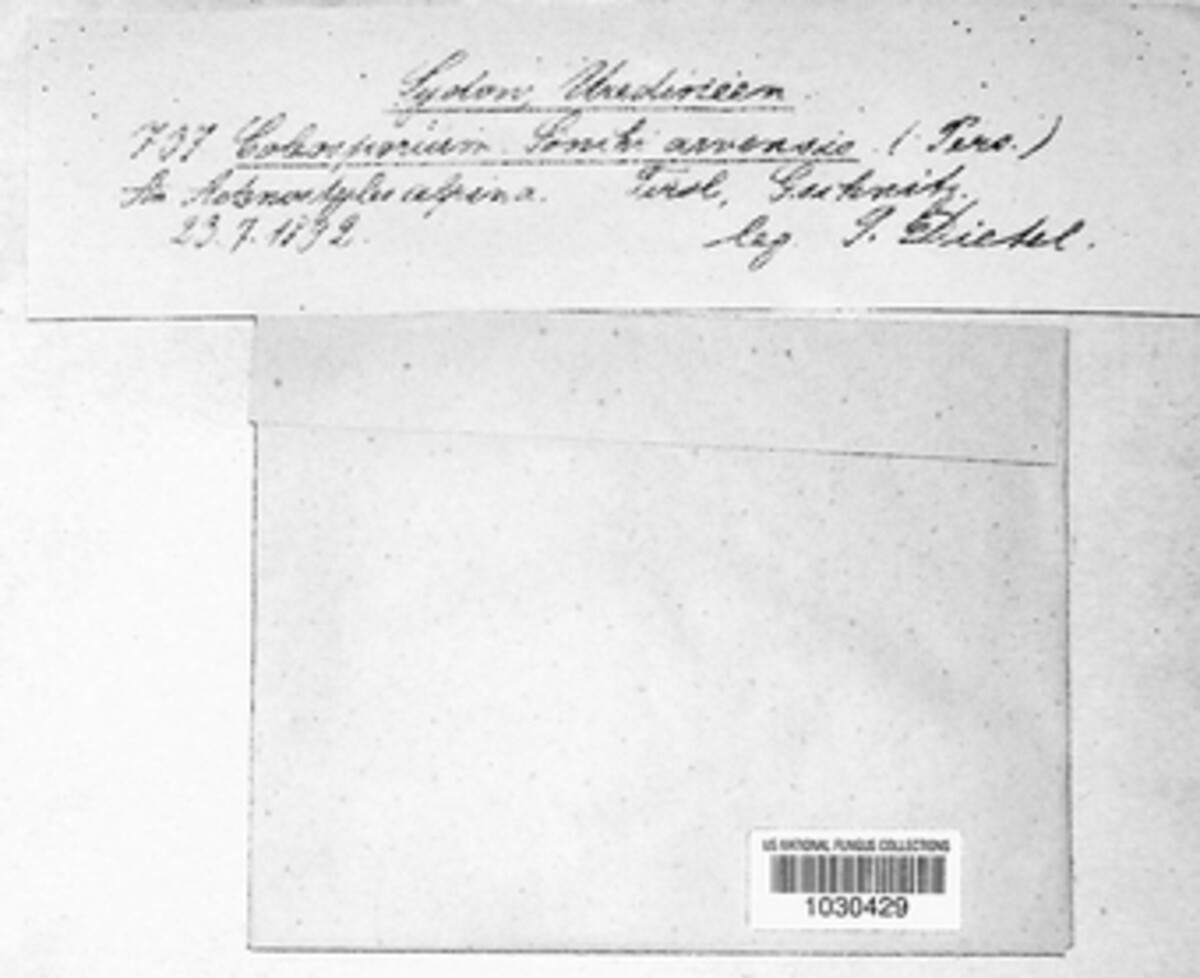 Sydow, Uredineen
737 Coleosporium Sonchi arvensis (Pers.)
An Adenostyles alpina. Tirol, Gschnitz.
23.7.1892. leg. P. Dietel.
US NATIONAL FUNGUS COLLECTIONS
1030429